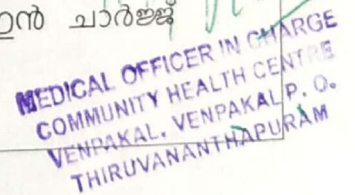 ഇൻ ചാർജ്ജ്
MEDICAL OFFICER IN CHARGE
COMMUNITY HEALTH CENTRE
VENPAKAL, VENPAKAL P. O.
THIRUVANANTHAPURAM